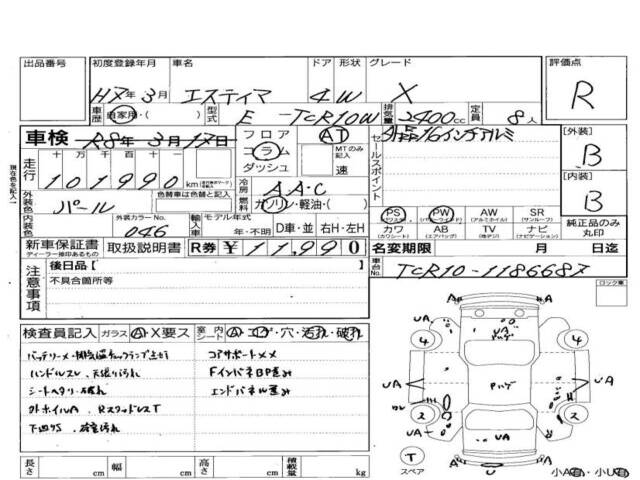 出品番号 初度登録年月 車名 ドア 形状 グレード 評価点
H7年3月 エスティマ 4W X R
車歴 自家用・( ) 型式 E-TCR10W 排気量 2400cc 定員 8人
車検 R8年3月17日 フロア コラム ダッシュ AT MTのみ記入 速
セールスポイント 社外16インチアルミ
[外装] B
[内装] B
走行 十万千百十一
101990 km
冷房 AAC
燃料 ガソリン・軽油・( )
外装色 パール 色替車は色替と記入
内装色 外装カラーNo. 046 輸入車 モデル年式 年・不明 D車・並 右H・左H
PS PW AW SR
(パワステ) (パワーウィンド) (アルミホイル) (サンルーフ)
カワ AB TV ナビ
(カワシート) (エアバッグ) (地デジ) (ナビゲーション)
純正品のみ丸印
新車保証書 取扱説明書 R券 ¥11,990 名変期限 月 日迄
ディーラー捺印あるもの
注意事項 後日品[ ]
不具合箇所等
車台No. TCR10-1186687
ロック車
検査員記入 ガラス A・X要ス 室内シート A・コゲ・穴・汚れ・破れ
バッテリーメ・排気温チェックランプ点灯 コアサポートメメ
ハンドルスレ、天張り汚れ FインパネBP歪み
シートヘタリ・破れ エンドパネル歪み
外ホイルA RスタッドレスT
下回りS
UA UA A
4 4
UA Pハゲ UA
2 2
UA
T
スペア
A U A
小A・小U
長さ cm 幅 cm 高さ cm 積載量 kg
現在色を記入